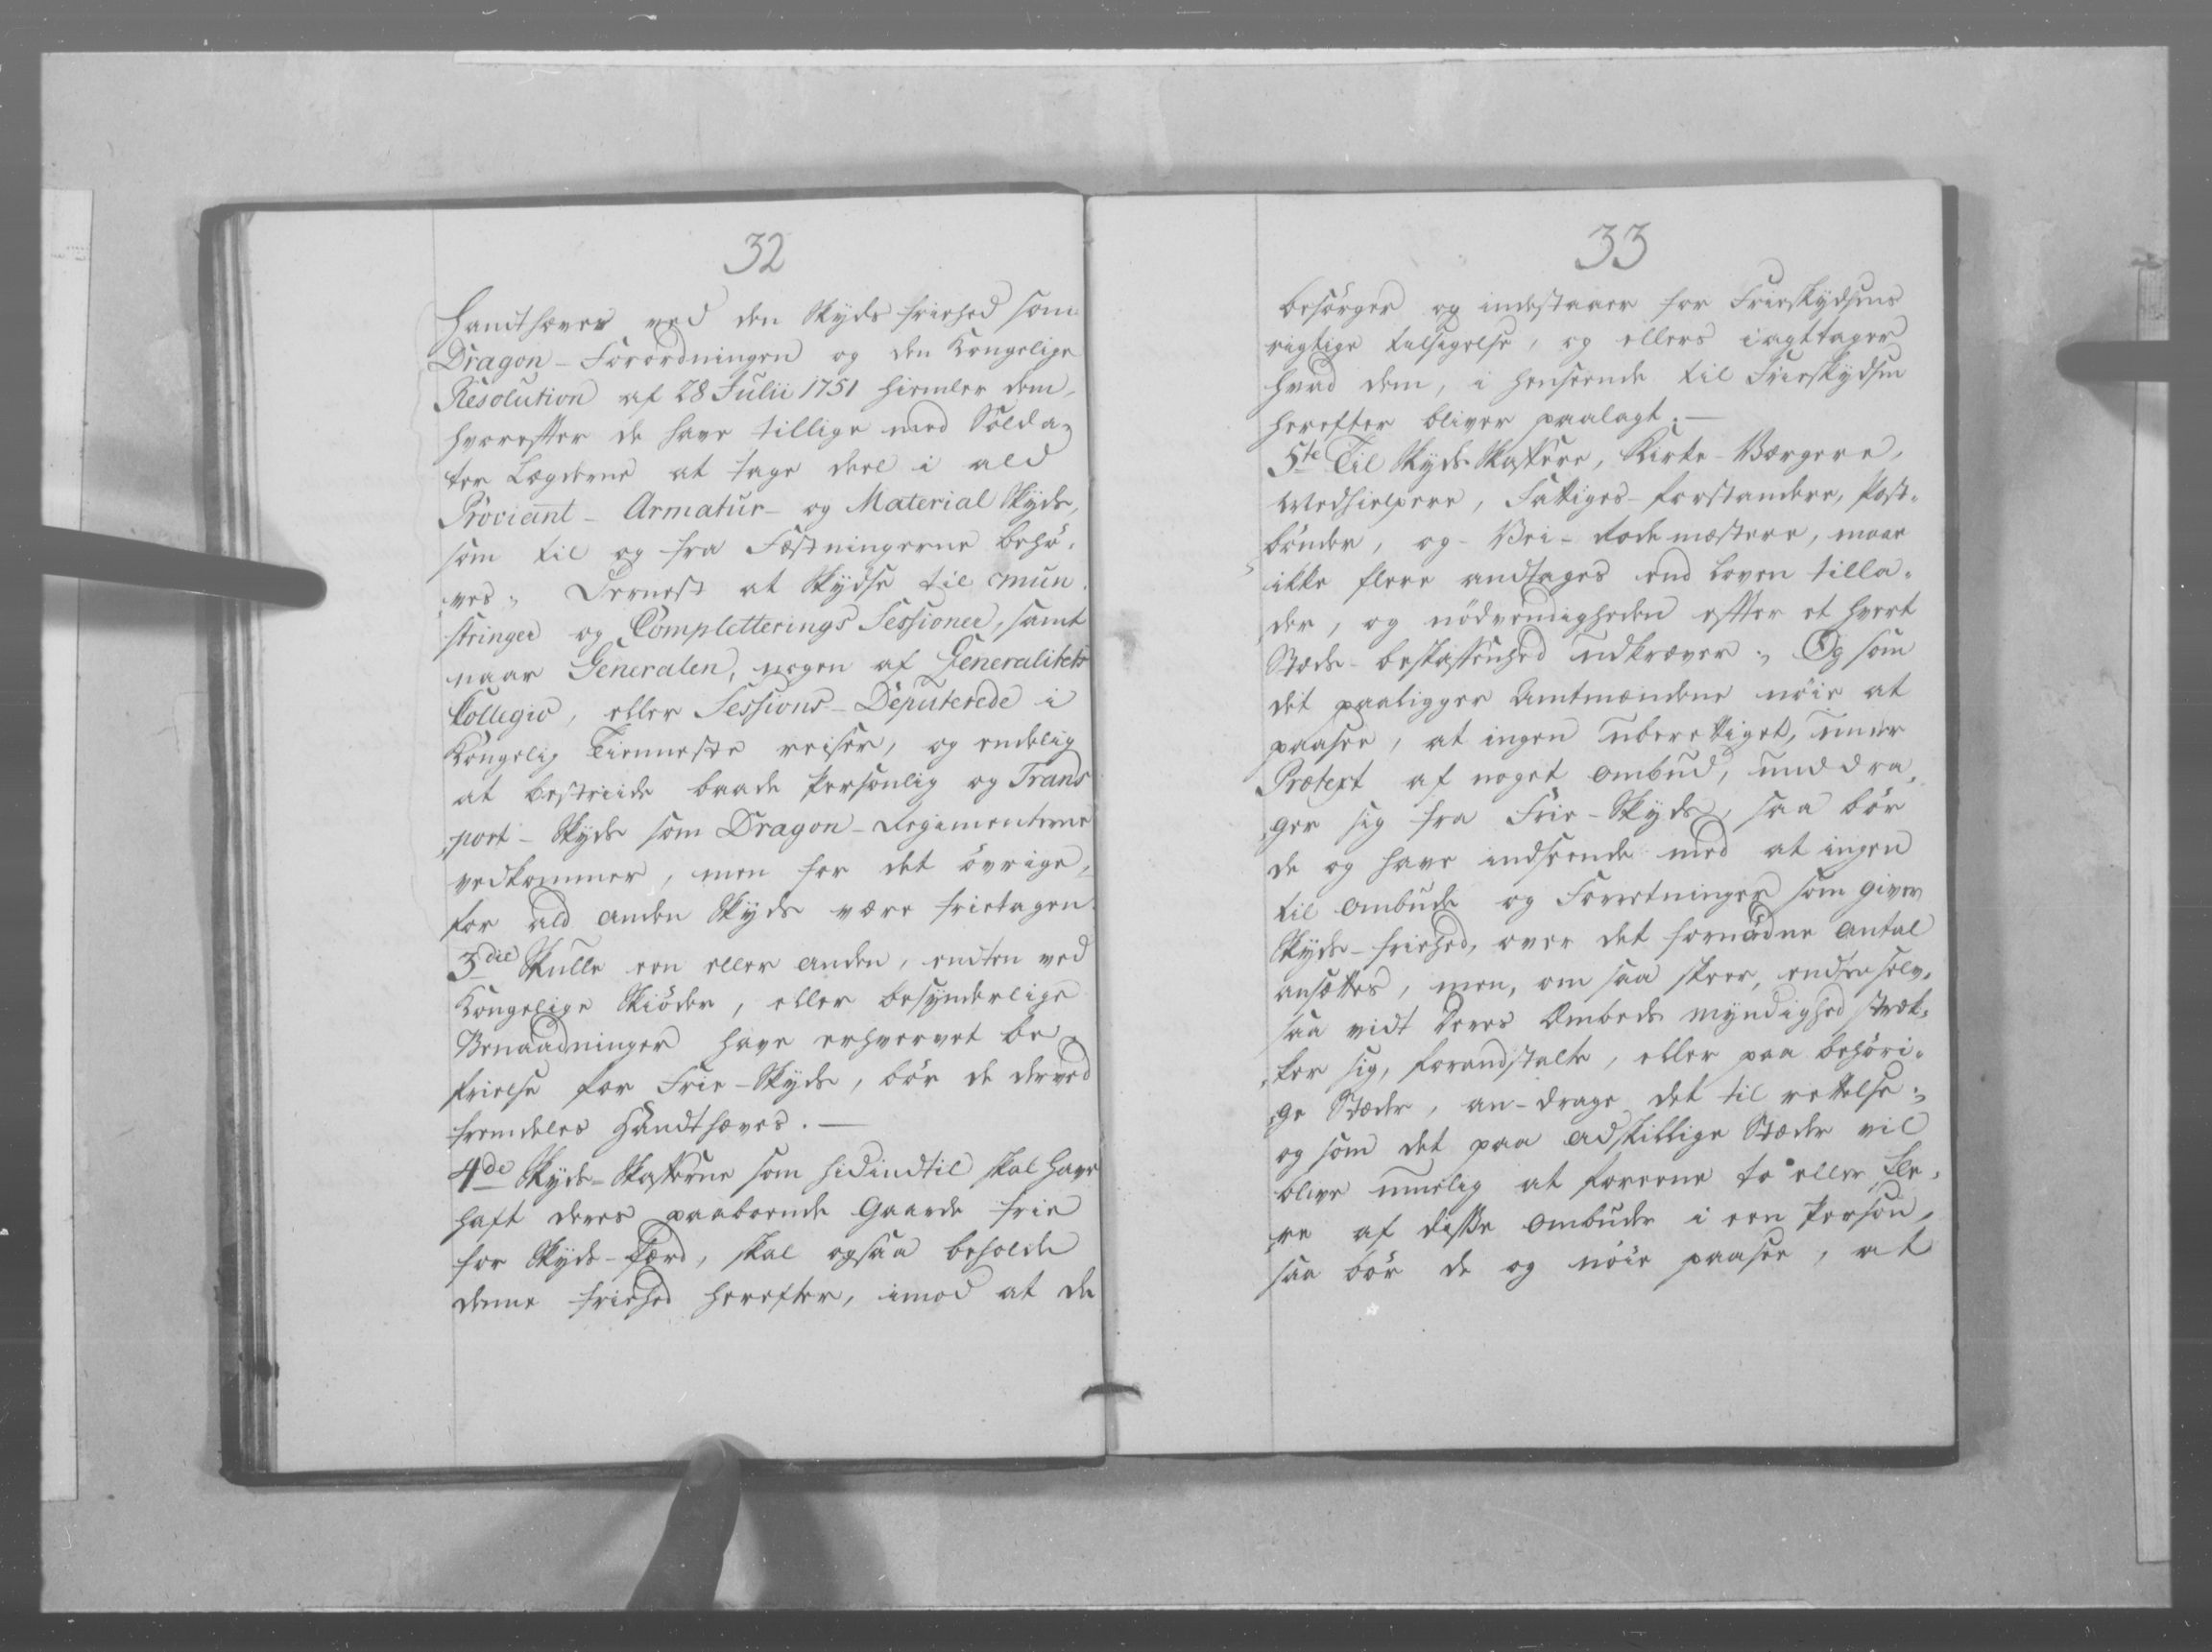 32
Handthæves ved den Skyds frished som
Dragon-Forordningen og den Kongelige
Resolution af 28 Julii 1751 hiemler dem,
hvorefter de have tillige med Solda-
ter Lægderne at tage deel i ald
Proviant- Armatur- og Material Skyds,
som til og fra Fæstningerne behø-
ves; Dernest at Skydse til Mun-
stringer og Completterings Sessioner, samt
naar Generalen, nogen af Generalitets
Collegio, eller Sessions-Deputerede i
Kongelig Tienneste reiser, og endelig
at bestriide baade Personlig og Trans
port-Skyds som Dragon-Regimenterne
vedkommer, men for det øvrige,
for ald anden Skyds være frietagen.
3die Skulle een eller anden, enten ved
Kongelige Skiøder, eller besynderlige
Benaadninger have erhvervet be-
frielse for Frie-Skyds, bør de derved
fremdeles Handthæves.—
4de Skyds-Skafferne som hidindtil skal have
haft deres paaboende Gaarde frie
for Skyds-Færd, skal ogsaa beholde
denne friehed herefter, imod at de
33
besørger og indestaaer for Frieskydsens
rigtige tilsigelse, og ellers iagttager
hvad dem, i henseende til Frieskydsen
herefter bliver paalagt.—
5te Til Skyds-Skaffere, Kirke-Værgere,
Medhielpere, Fattiges-forstandere, Post-
bønder, og Vei-Rodemæstere, maae
ikke flere andtages end Loven tilla-
der, og nødvendigheden efter et hvert
Stæds-beskaffenhed udkræver; Og som
det paaligger Amtmændene nøie at
paasee, at ingen uberettiget, under
Prætext af noget Ombud, unddra-
ger sig fra Frie-Skyds, saa bør
de og have indseende med at ingen
til Ombude og Forretninger som giver
Skyds-friehed, over det fornødne Antal
ansættes, men, om saa skeer, endten selv,
saa vidt deres Embeds myndighed stræk-
ker sig, forandstalte, eller paa behøri-
ge Stæder, an-drage det til rettelse;
og som det paa adskillige Stæder vil
blive muelig at foreene to eller fle-
re af disse Ombude i een Person,
saa bør de og nøie paasee, at